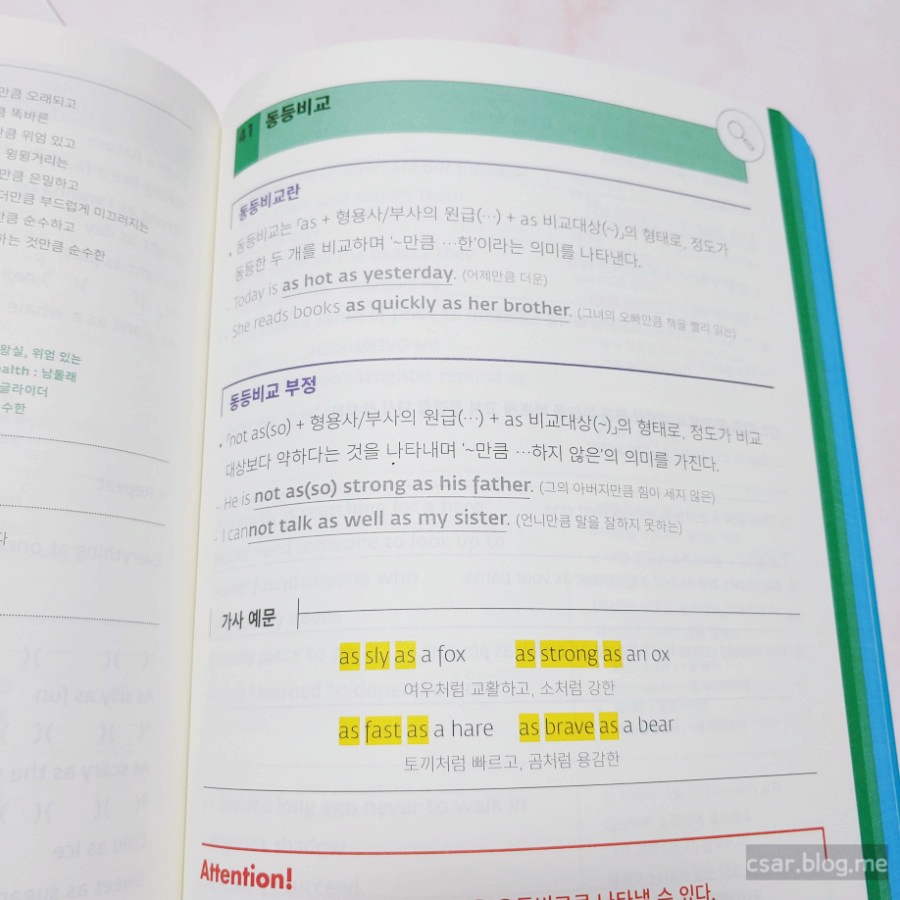 만큼 오래되고
큼 똑바른
만큼 위엄 있고
윙윙거리는
만큼 은밀하고
더만큼 부드럽게 미끄러지는
만큼 순수하고
하는 것만큼 순수한
왕실, 위엄 있는
ealth : 남몰래
글라이더
수한
다
41 동등비교
동등비교란
• 동등비교는 「as + 형용사/부사의 원급(…) + as 비교대상(~)」의 형태로, 정도가
동등한 두 개를 비교하며 '~만큼 …한'이라는 의미를 나타낸다.
- Today is as hot as yesterday. (어제만큼 더운)
- She reads books as quickly as her brother. (그녀의 오빠만큼 책을 빨리 읽는)
동등비교 부정
• 「not as(so) + 형용사/부사의 원급(…) + as 비교대상(~)」의 형태로, 정도가 비교
대상보다 약하다는 것을 나타내며 '~만큼 …하지 않은'의 의미를 가진다.
- He is not as(so) strong as his father. (그의 아버지만큼 힘이 세지 않은)
- I cannot talk as well as my sister. (언니만큼 말을 잘하지 못하는)
가사 예문
as sly as a fox as strong as an ox
여우처럼 교활하고, 소처럼 강한
as fast as a hare as brave as a bear
토끼처럼 빠르고, 곰처럼 용감한
Attention!
동등비교로 나타낼 수 있다.
csar.blog.me